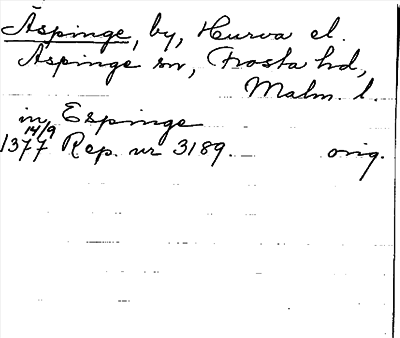 Äspinge, by, Hurva el.
Äspinge sn, Frosta hd,
Malm. l.
in Espinge
14/9
1377 Rep. nr 3189. orig.